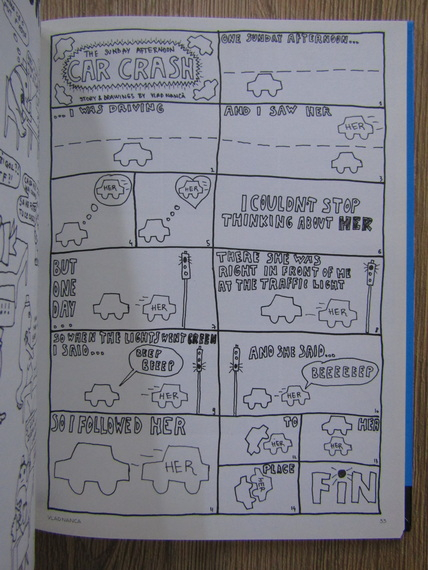 THE SUNDAY AFTERNOON
CAR CRASH
STORY & DRAWINGS BY VLAD NANCĂ
ONE SUNDAY AFTERNOON...
1
... I WAS DRIVING
2
AND I SAW HER
HER
3
HER
4
HER
5
I COULDN'T STOP
THINKING ABOUT HER
6
BUT
ONE
DAY
...
HER
7
THERE SHE WAS
RIGHT IN FRONT OF ME
AT THE TRAFFIC LIGHT
HER
8
SO WHEN THE LIGHTS WENT GREEN
I SAID...
BEEP
BEEEP
HER
9
AND SHE SAID...
BEEEEEEP
HER
10
SO I FOLLOWED HER
HER
11
TO
HER
HER
HER
PLACE
HER
FiN
VLAD NANCA